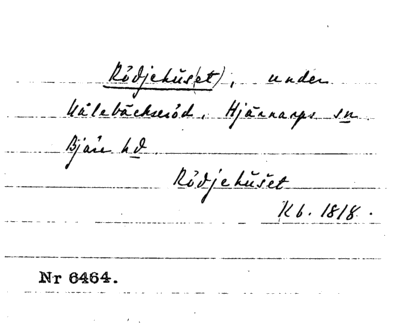 Rödjehus(et), under
Kålebäcksröd, Hjärnarps sn
Bjäre hd
Rödjehuset
Kb. 1818.
Nr 6464.